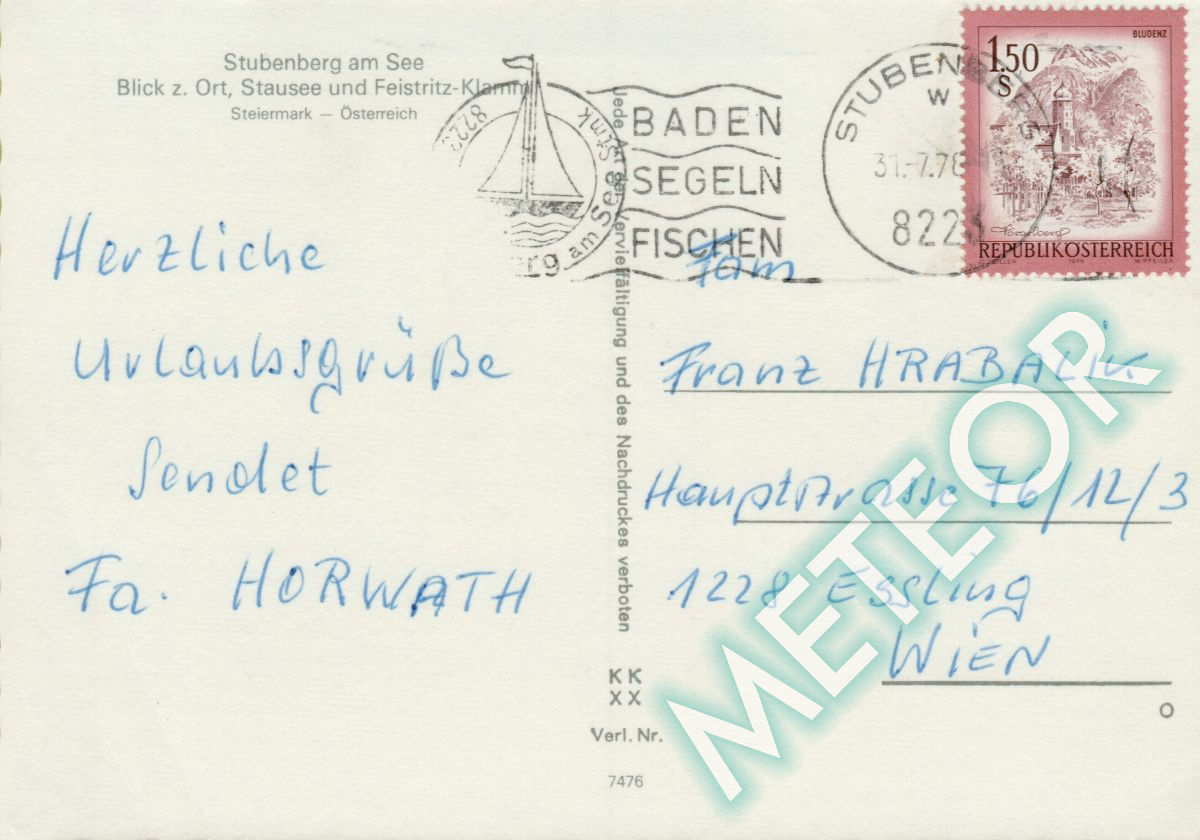 Stubenberg am See
Blick z. Ort, Stausee und Feistritz-Klamm
Steiermark – Österreich
8223
Stmk
am See
BADEN
SEGELN
FISCHEN
STUBENBERG
W
31.-7.78
8223
BLUDENZ
1.50
S
REPUBLIK ÖSTERREICH
1974
W. PFEILER
Jede Art der Vervielfältigung und des Nachdruckes verboten
Herzliche
Urlaubsgrüße
Sendet
Fa. HORWATH
Fam
Franz HRABALIK
Hauptstrasse 76/12/3
1228 Essling
WIEN
KK
XX
Verl. Nr.
7476
METEOR